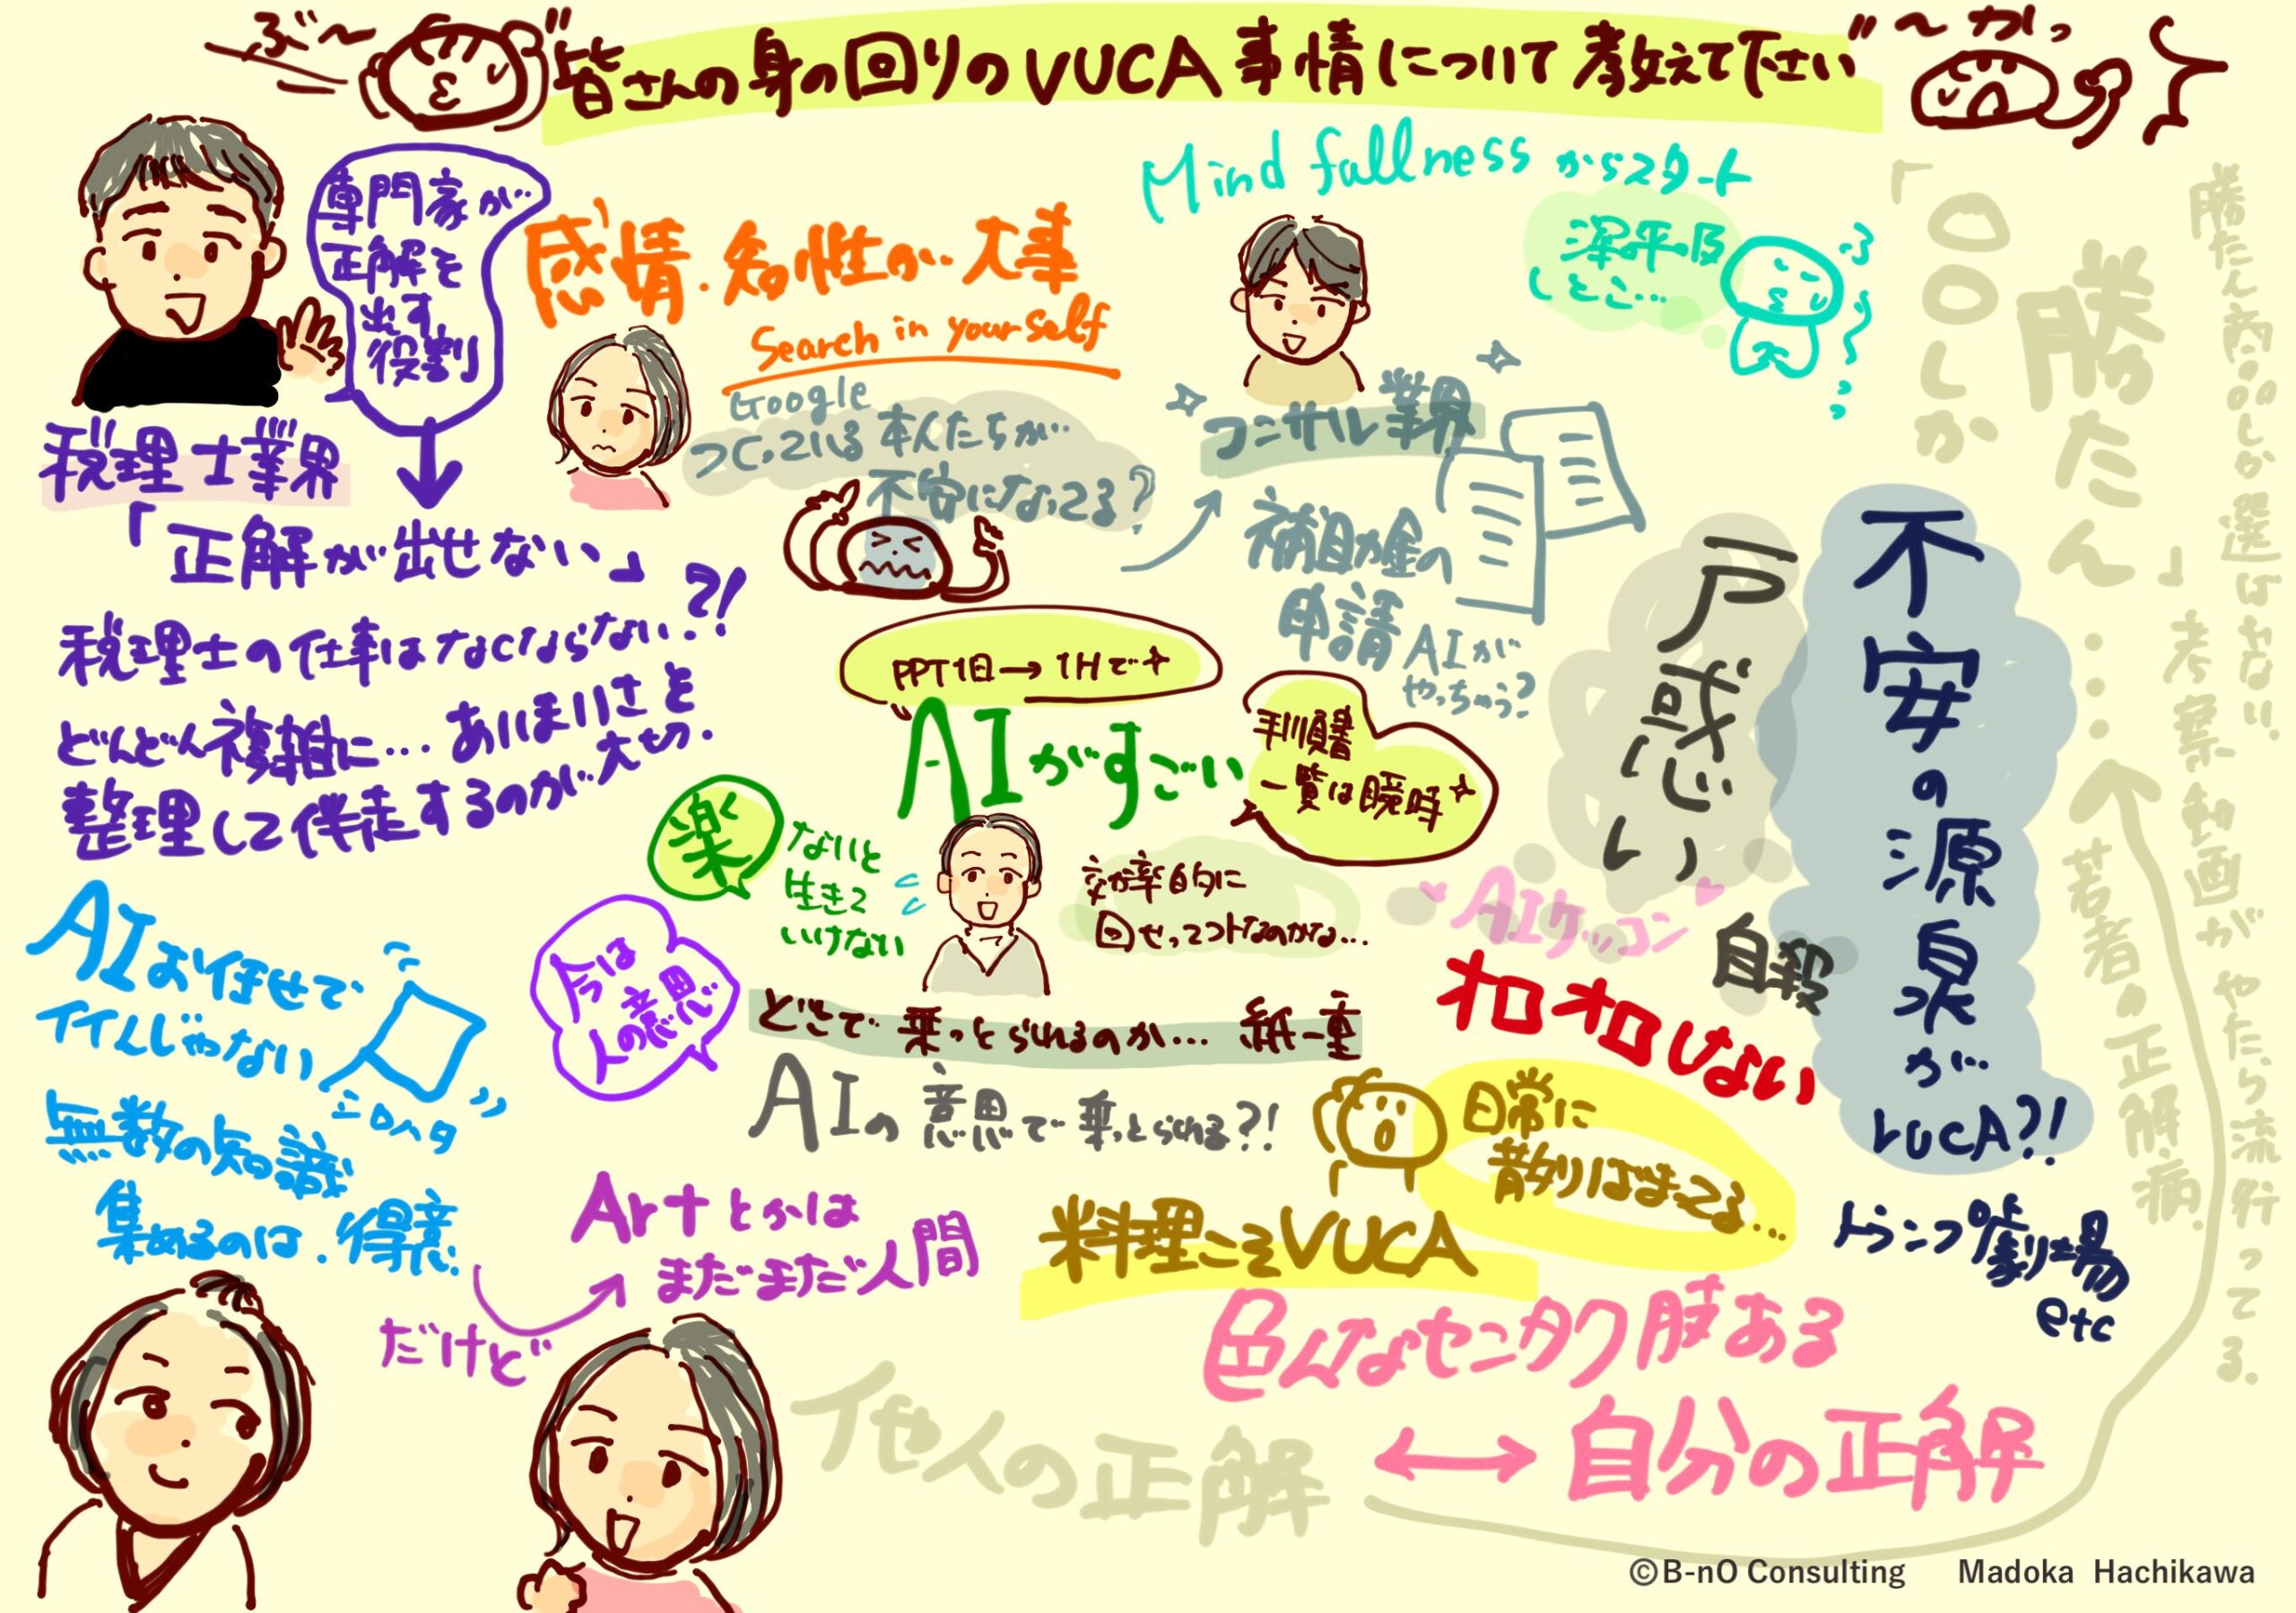 ぶ〜
"皆さんの身の回りのVUCA事情について教えて下さい"
〜かっ
専門家が
正解を
出す
役割
税理士業界
「正解が出せない」
税理士の仕事はなくならない?!
どんどん複雑に…あいまいさを
整理して伴走するのが大切.
感情.知性が大事
Search in yourself
Google
つくっている本人たちが
不安になってる?
Mind fullness からスタート
深呼吸
しとこ…
ふぅ〜
コンサル業界
補助金の
申請 AIが
やっちゃう?
PPT1日→1Hで
AIがすごい
手順書
一覧は瞬時
楽
ないと
生きて
いけない
効率的に
回せってコトなのかな…
今は
人の意思
どこで乗っとられるのか…紙一重
AIの意思で乗っとられる?!
AIお任せで
イイんじゃない
シロハタ
無数の知識
集めるのは.得意.
だけど
Artとかは
まだまだ人間
料理こそVUCA
日常に
散りばまってる…
戸惑い
AIケッコン
自殺
オロオロしない
不安の源泉がVUCA?!
トランプ劇場
etc
「〇〇しか
勝たん」……
勝たん商品しか選ばない.
考察動画がやたら流行ってる.
若者の正解病.
色んなセンタク肢ある
他人の正解 ↔ 自分の正解
©B-nO Consulting Madoka Hachikawa